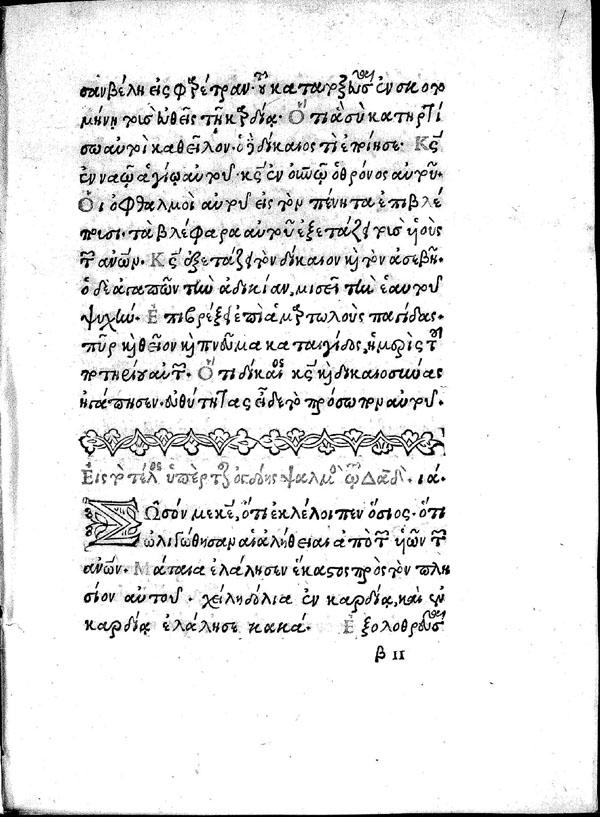 σαν βέλη εἰς φαρέτραν· τοῦ κατατοξεῦσαι ἐν σκοτο
μήνῃ τοὺς εὐθεῖς τῇ καρδίᾳ· Ὅτι ἃ σὺ κατηρτί
σω αὐτοὶ καθεῖλον· ὁ δὲ δίκαιος τί ἐποίησε· Κς
ἐν ναῷ ἁγίῳ αὐτοῦ· κς ἐν οὐνῷ ὁ θρόνος αὐτοῦ·
Οἱ ὀφθαλμοὶ αὐτοῦ εἰς τὸν πένητα ἐπιβλέ
πουσι· τὰ βλέφαρα αὐτοῦ ἐξετάζει τοὺς υἱοὺς
τῶν ἀνων· Κς ἐξετάζει τὸν δίκαιον καὶ τὸν ἀσεβῆ·
ὁ δὲ ἀγαπῶν τὴν ἀδικίαν, μισεῖ τὴν ἑαυτοῦ
ψυχήν· Ἐπιβρέξει ἐπὶ ἁμαρτωλοὺς παγίδας·
πῦρ καὶ θεῖον καὶ πνεῦμα καταιγίδος, ἡ μερὶς τοῦ
ποτηρίου αὐτῶν· Ὅτι δίκαιος κς καὶ δικαιοσύνας
ἠγάπησεν· εὐθύτητας εἶδε τὸ πρόσωπον αὐτοῦ·
Εἰς τὸ τέλος ὑπὲρ τῆς ὀγδόης ψαλμὸς τῷ Δαδ· ια·
Σῶσόν με κε, ὅτι ἐκλέλοιπεν ὅσιος· ὅτι
ὠλιγώθησαν αἱ ἀλήθειαι ἀπὸ τῶν υἱῶν τῶν
ἀνων· Μάταια ἐλάλησεν ἕκαστος πρὸς τὸν πλη
σίον αὐτοῦ· χείλη δόλια ἐν καρδίᾳ, καὶ ἐν
καρδίᾳ ἐλάλησε κακά· Ἐξολοθρεύσαι
β II